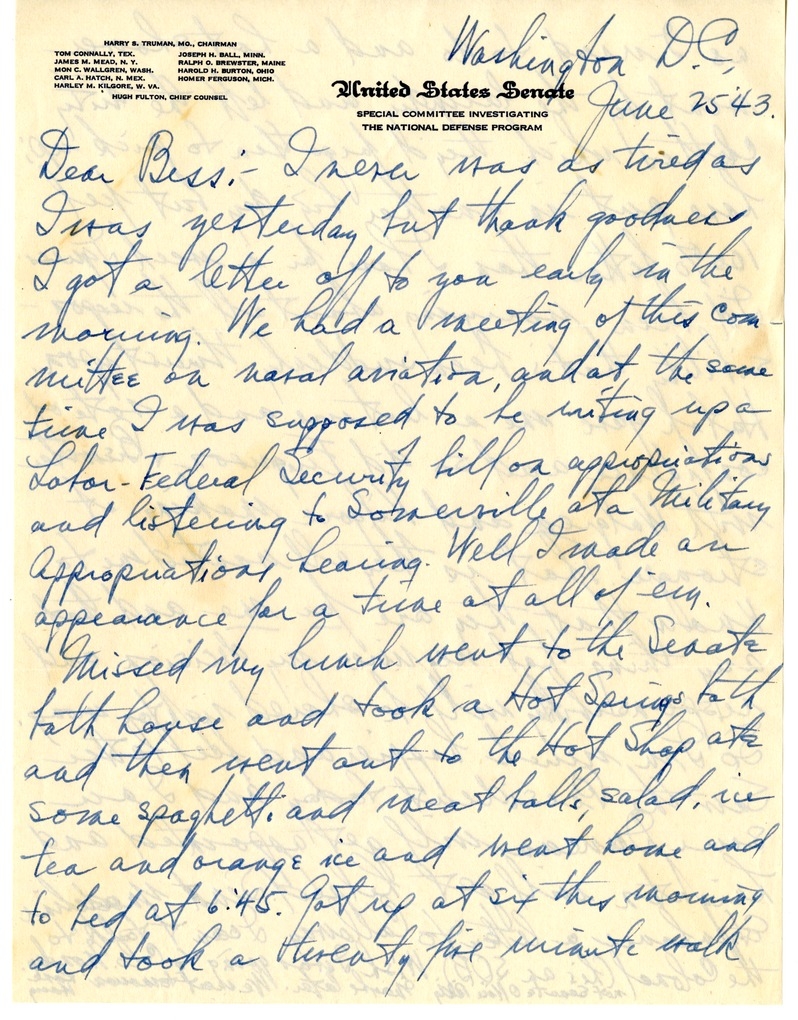 HARRY S. TRUMAN, MO., CHAIRMAN
TOM CONNALLY, TEX. JOSEPH H. BALL, MINN.
JAMES M. MEAD, N. Y. RALPH O. BREWSTER, MAINE
MON C. WALLGREN, WASH. HAROLD H. BURTON, OHIO
CARL A. HATCH, N. MEX. HOMER FERGUSON, MICH.
HARLEY M. KILGORE, W. VA.
HUGH FULTON, CHIEF COUNSEL
United States Senate
SPECIAL COMMITTEE INVESTIGATING
THE NATIONAL DEFENSE PROGRAM
Washington D.C.
June 25 '43.
Dear Bess:- I never was as tired as
I was yesterday but thank goodness
I got a letter off to you early in the
morning. We had a meeting of this com-
mittee on naval aviation, and at the same
time I was supposed to be writing up a
Labor-Federal Security bill on appropriations
and listening to Somerville at a Military
Appropriations hearing. Well I made an
appearance for a time at all of 'em.
Missed my lunch went to the Senate
bath house and took a Hot Springs bath
and then went out to the Hot Shop ate
some spaghetti and meat balls, salad, ice
tea and orange ice and went home and
to bed at 6:45. Got up at six this morning
and took a twenty five minute walk